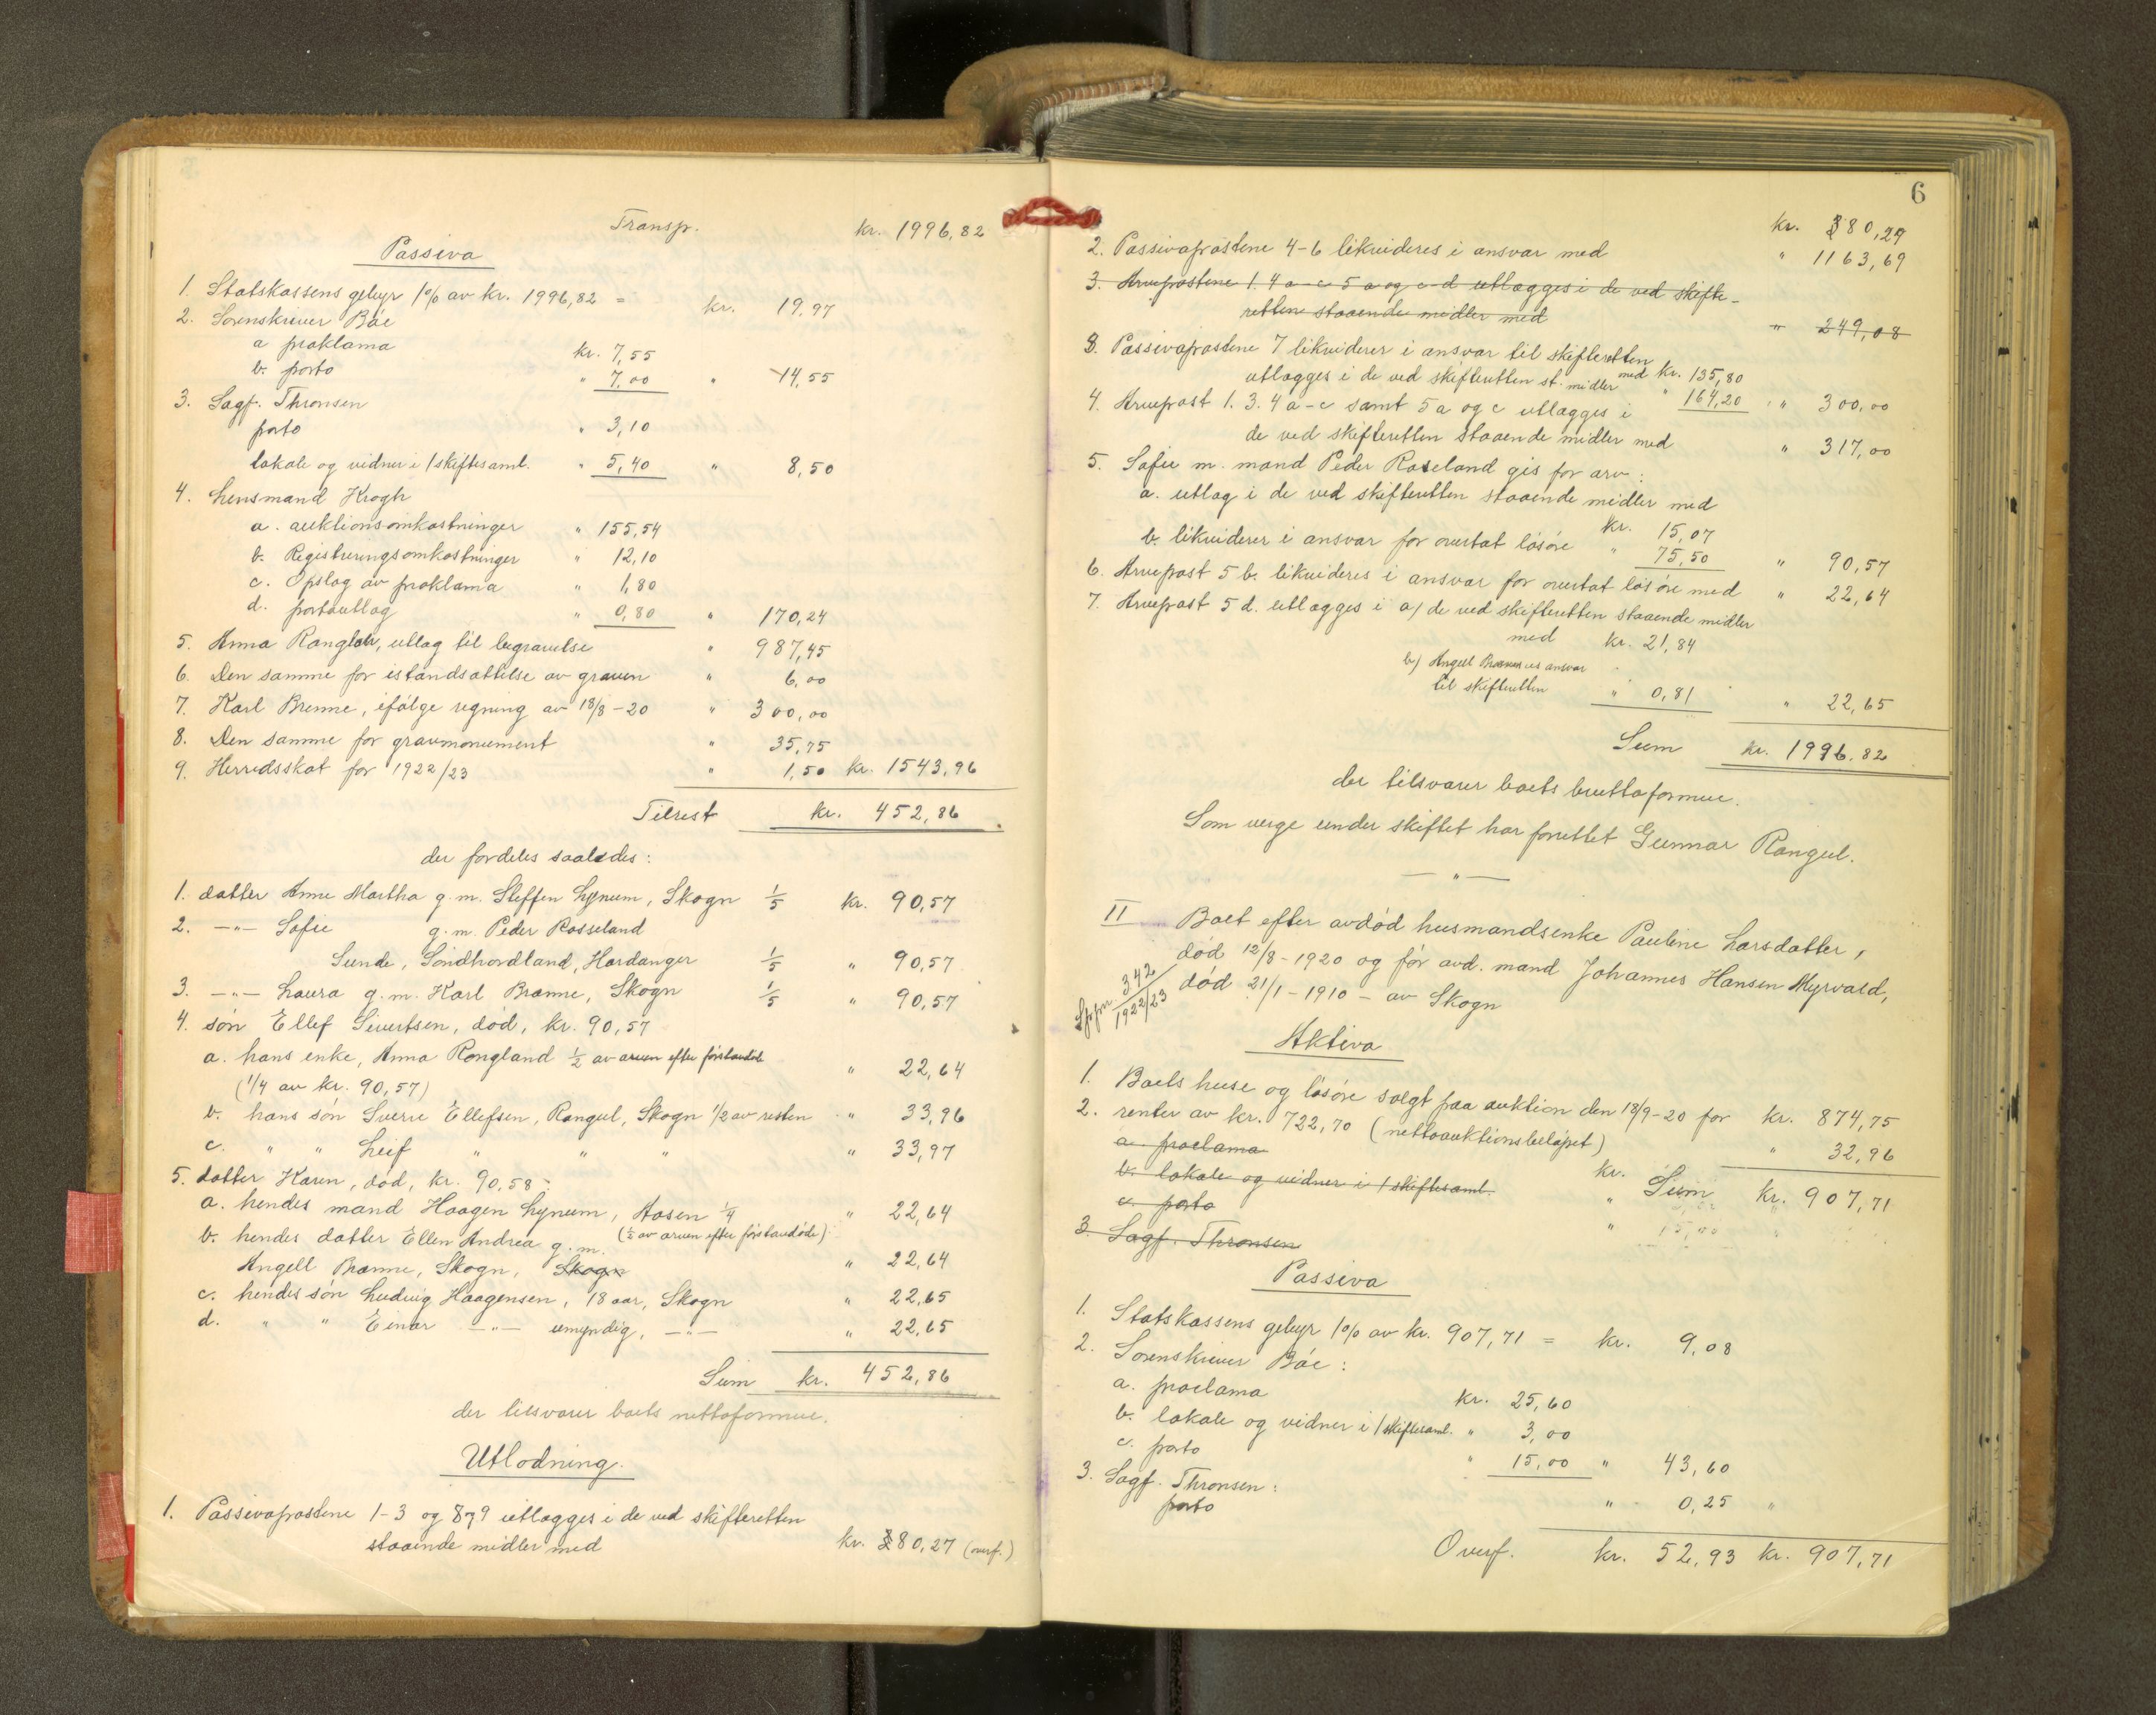 Transp. kr. 1996,82
Passiva
1. Statskassens gebyr 1% av kr. 1996,82 = kr. 19,97
2. Sorenskriver Bóe
a proklama kr. 7,55
b. porto " 7,00 " 14,55
3. Sagf. Thronsen
porto " 3,10
lokale og vidner i 1 skiftesaml. " 5,40 " 8,50
4. Lensmand Krogh
a. auktionsomkostninger " 155,54
b. Registreringsomkostninger " 12,10
c. Opslag av proklama " 1,80
d. portoutlag " 0,80 " 170,24
5. Anna Ranglan, utlag til begravelse " 987,45
6. Den samme for istandsættelse av graven " 6,00
7. Karl Brenne, ifólge regning av 18/8-20 " 300,00
8. Den samme for gravmonument " 35,75
9. Herredsskat for 1922/23 " 1,50 kr. 1543,96
Tilrest kr. 452,86
der fordeles saaledes:
1. datter Anne Martha g. m. Steffen Lynum, Skogn 1/5 kr. 90,57
2. —"— Sofie g. m. Peder Rosseland
Sunde, Söndhordland, Hardanger 1/5 " 90,57
3. —"— Laura g. m. Karl Brænne, Skogn 1/5 " 90,57
4. són Ellef Sivertsen, död, kr. 90,57
a. hans enke, Anna Rongland 1/2 av arven efter förstavdöde " 22,64
(1/4 av kr. 90,57)
b. hans són Sverre Ellefsen, Rangul, Skogn 1/2 av resten " 33,96
c. " " Leif " " " " 33,97
5. datter Karen, död, kr. 90,58:
a. hendes mand Haagen Lynum, Aasen 1/4 " 22,64
(1/2 av arven efter förstavdöde)
b. hendes datter Ellen Andrea g. m.
Angell Brænne, Skogn, Skogn " 22,64
c. hendes són Ludvig Haagensen, 18 aar, Skogn " 22,65
d. " " Einar —"— umyndig, —"— " 22,65
Sum kr. 452,86
der tilsvarer boets nettoformue.
Utlodning.
1. Passivapostene 1-3 og 8 og 9 utlægges i de ved skifteretten
staaende midler med kr. 80,27 (overf.)
6
kr. 80,29
2. Passivapostene 4-6 likvideres i ansvar med " 1163,69
3. Arvepostene 1. 4 a-c 5 a og c-d utlægges i de ved skifte-
retten staaende midler med " 249,08
3. Passivapostene 7 likviderer i ansvar til skifteretten
med kr. 135,80
utlægges i de ved skifteretten st. midler " 164,20 " 300,00
4. Arvepost 1. 3. 4 a-c samt 5 a og c utlægges i
de ved skifteretten staaende midler med " 317,00
5. Sofie m. mand Peder Roseland gis for arv:
a. utlæg i de ved skifteretten staaende midler med
kr. 15,07
b. likviderer i ansvar for overtat lösöre " 75,50 " 90,57
6. Arvepost 5 b. likvideres i ansvar for overtat lösöre med " 22,64
7. Arvepost 5 d. utlægges i a) de ved skifteretten staaende midler
med kr. 21,84
b) Angell Brænnes ansvar
til skifteretten " 0,81 " 22,65
Sum kr. 1996,82
der tilsvarer boets bruttoformue.
Som verge under skiftet har forrettet Gunnar Rangul.
— " —
II Boet efter avdöd husmandsenke Pauline Larsdatter,
död 12/8-1920 og för avd. mand Johannes Hansen Myrvold,
död 21/1-1910 - av Skogn
342
1922/23
Aktiva
1. Boets huse og lösöre solgt paa auktion den 18/9-20 for kr. 874,75
2. renter av kr. 722,70 (nettoauktionsbelöpet) " 32,96
a. proclama kr.
b. lokale og vidner i 1 skiftesaml. " Sum kr. 907,71
c. porto " 15,00
3. Sagf. Thronsen
Passiva
1. Statskassens gebyr 1% av kr. 907,71 = kr. 9,08
2. Sorenskriver Bóe:
a. proclama kr. 25,60
b. lokale og vidner i 1 skiftesaml. " 3,00
c. porto " 15,00 " 43,60
3. Sagf. Thronsen:
porto " 0,25 "
Overf. kr. 52,93 kr. 907,71